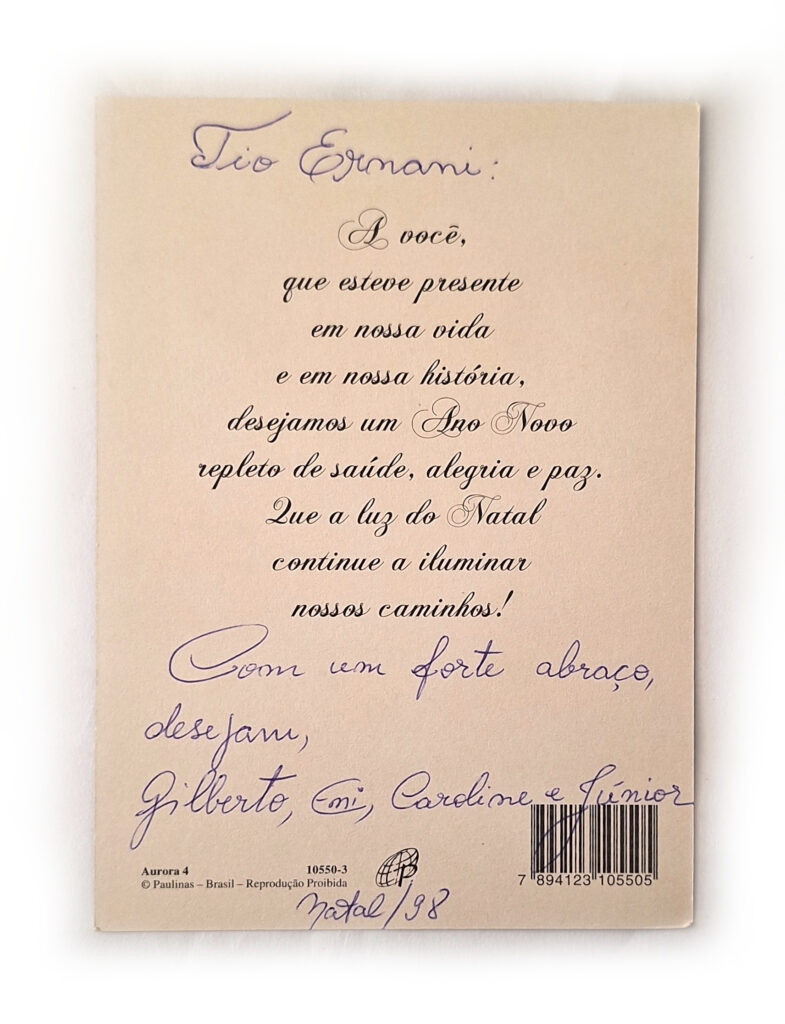 Tio Ernani:
A você,
que esteve presente
em nossa vida
e em nossa história,
desejamos um Ano Novo
repleto de saúde, alegria e paz.
Que a luz do Natal
continue a iluminar
nossos caminhos!
Com um forte abraço,
desejam,
Gilberto, Emi, Caroline e Júnior
Aurora 4 10550-3
© Paulinas – Brasil – Reprodução Proibida
7 894123 105505
Natal/98